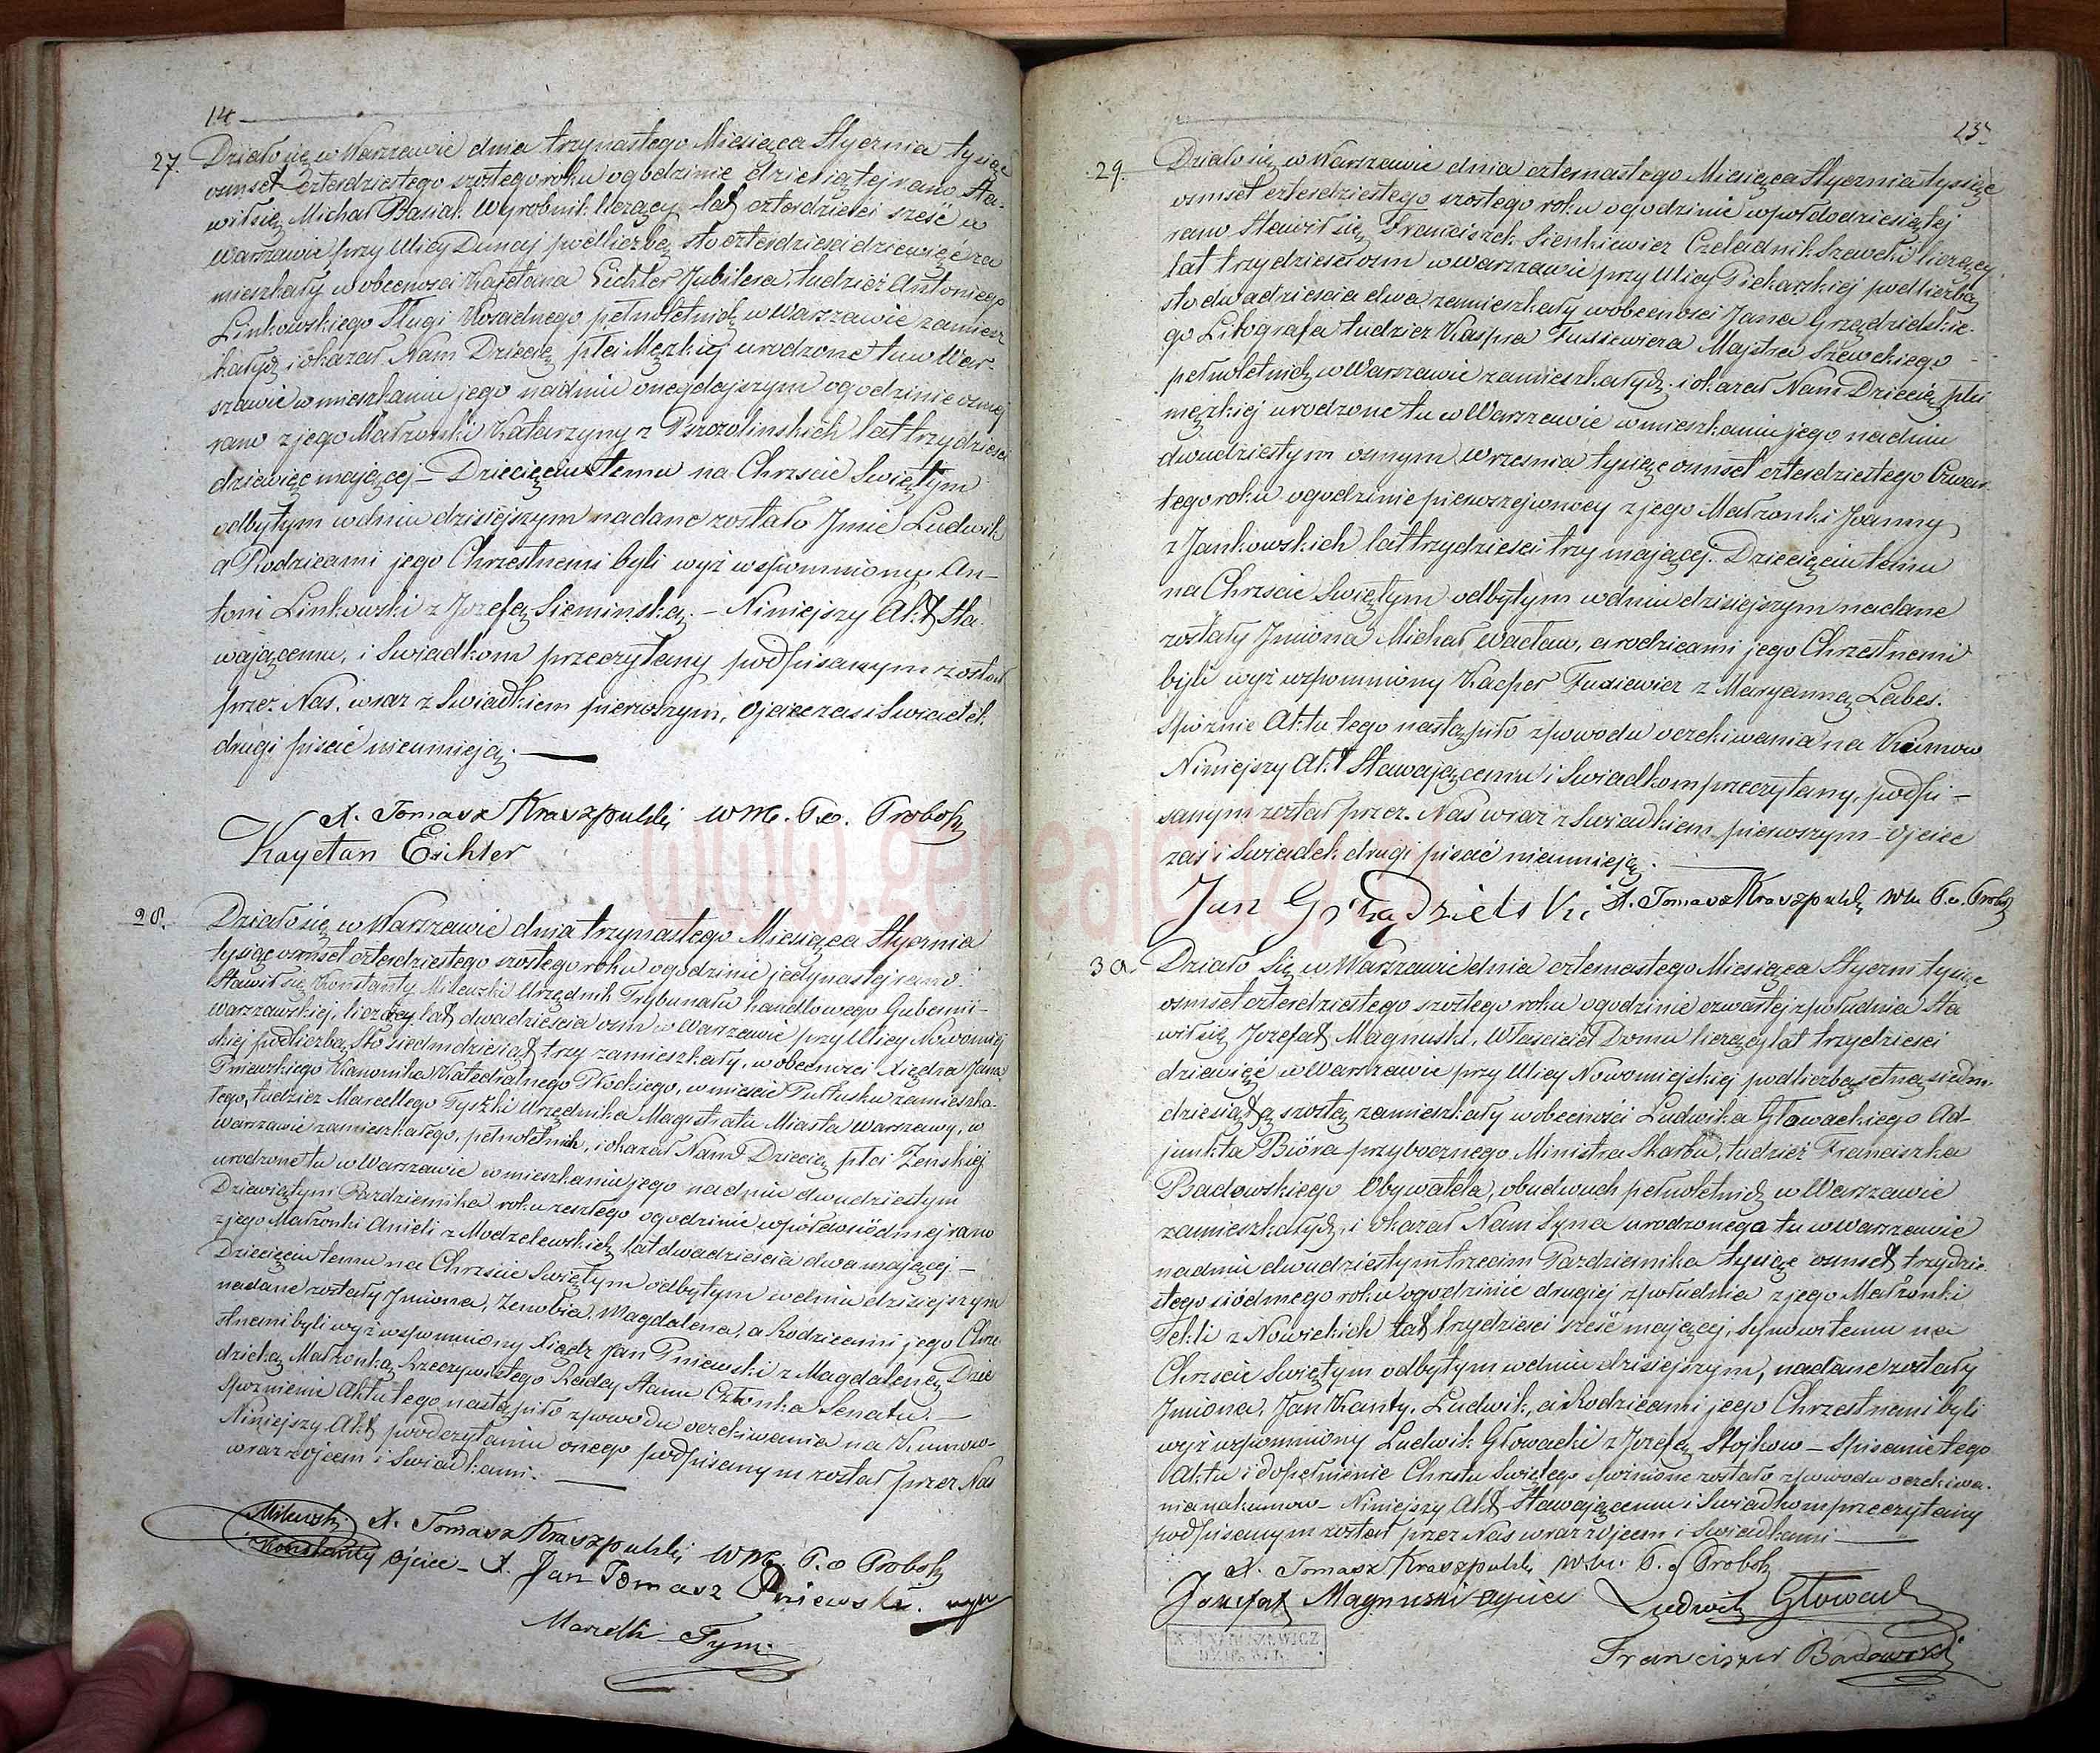 14
27. Działo się w Warszawie dnia trzynastego Miesiąca Stycznia tysiąc
osmset czterdziestego szóstego roku o godzinie dziesiątej rano Sta-
wił się Michał Basiak Wyrobnik liczący lat czterdzieści sześć w
Warszawie przy Ulicy Dunaj pod liczbą sto czterdzieści dziewięć za
mieszkały w obecności Kajetana Eichler Jubilera, tudzież Antoniego
Linkowskiego Sługi pełnoletnich w Warszawie zamiesz
kałych i okazał Nam Dziecię płci Męzkiej urodzone tu w War-
szawie w mieszkaniu jego na dniu onegdajszym o godzinie osmej
rano z jego Małżonki Katarzyny z lat trzydzieści
dziewięć mającej – Dziecięciu temu na Chrzcie Świętym
odbytym w dniu dzisiejszym nadane zostało Jmie Ludwik
a Rodzicami jego Chrzestnemi byli wyż wspomniony An-
toni Linkowski z Jozefą Siemińską. – Niniejszy Akt sta
wającemu, i Swiadkom przeczytany podpisanym został
przez Nas, wraz z Swiadkiem pierwszym, Ojciec zaś i Swiadek
drugi pisać nieumieją. —
X. Tomasz Kraszpulski WM. P.o. Probosz
Kayetan Eichler
28. Działo się w Warszawie dnia trzynastego Miesiąca Stycznia
tysiąc osmset czterdziestego szóstego roku o godzinie jedynastej rano
Stawił się Konstanty Milewski Urzędnik Trybunału handlowego Gubernii-
Warszawskiej, liczący lat dwadzieścia osm w Warszawie przy Ulicy Nowomiej
skiej pod liczbą Sto siedmdziesiąt trzy zamieszkały, w obecności Xiędza Jana
Pniewskiego Kanonika Katedralnego Płockiego, w mieście Pułtusku zamieszka-
łego, tudzież Marcellego Tyszki Urzędnika Magistratu Miasta Warszawy, w
Warszawie zamieszkałego, pełnoletnich, i okazał Nam Dziecię płci Żeńskiej
urodzone tu w Warszawie w mieszkaniu jego na dniu dwudziestym
Dziewiątym Pazdziernika roku zeszłego o godzinie wpół do siódmej rano
z jego Małżonki Anieli z Modzelewskich lat dwadzieścia dwa mającej –
Dziecięciu temu na Chrzcie Świętym odbytym w dniu dzisiejszym
nadane zostały Jmiona, Zenobia, Magdalena, a Rodzicami jego Chrze
stnemi byli wyż wspomniony Xiądz Jan Pniewski z Magdaleną Dzie
dzicką Małżonką Rzeczywistego Radcy Stanu Członka Senatu. —
Spóznienie Aktu tego nastąpiło z powodu oczekiwania na Kumów-
Niniejszy Akt po odczytaniu onego podpisanym został przez Nas
wraz z ojcem i Swiadkami. —
Milewski X. Tomasz Kraszpulski WM. P.o Probosz
Konstanty Ojciec – X. Jan Tomasz Pniewski. mp
Marcelli Tyszk
15.
29. Działo się w Warszawie dnia czternastego Miesiąca Stycznia tysiąc
osmset czterdziestego szóstego roku o godzinie wpół do dziesiątej
rano Stawił się Franciszek Sienkiewicz Czeladnik Szewcki liczący
lat trzydzieści osm w Warszawie przy Ulicy Piekarskiej pod liczbą
sto dwadzieścia dwa zamieszkały w obecności Jana Grządzielskie-
go Litografa tudzież Kaspra Fusiewicza Majstra Szewckiego
pełnoletnich w Warszawie zamieszkałych i okazał Nam Dziecię płci
męzkiej urodzone tu w Warszawie w mieszkaniu jego na dniu
dwudziestym osmym Września tysiąc osmset czterdziestego Czwar
tego roku o godzinie pierwszej w nocy z jego Małżonki Joanny
z Jankowskich lat trzydzieści trzy mającej. Dziecięciu temu
na Chrzcie Świętym odbytym w dniu dzisiejszym nadane
zostały Jmiona Michał Wacław, a rodzicami jego Chrzestnemi
byli wyż wspomniony Kacper Fusiewicz z Maryanną Labes.
Spóznie Aktu tego nastąpiło z powodu oczekiwania na Kumow
Niniejszy Akt Stawającemu i Swiadkom przeczytany, podpi-
sanym został przez Nas wraz z Swiadkiem pierwszym – Ojciec
zaś i Swiadek drugi pisać nieumieją. —
Jan Grządzielski X. Tomasz Kraszpulski WM. P.o. Probosz
30. Działo Się w Warszawie dnia czternastego Miesiąca Styczni tysiąc
osmset czterdziestego szóstego roku o godzinie czwartej z południa Sta
wił się Jozefat Magnuski, Właściciel Domu liczący lat trzydzieści
dziewięć w Warszawie przy Ulicy Nowomiejskiej pod liczbą setną siedm-
dziesiątą szóstą zamieszkały w obecności Ludwika Głowackiego Ad-
junkta Bióra przybocznego Ministra Skarbu, tudzież Franciszka
Badowskiego Obywatela, obudwuch pełnoletnich w Warszawie
zamieszkałych, i okazał Nam Syna urodzonego tu w Warszawie
na dniu dwudziestym trzecim Pazdziernika tysiąc osmset trzydzie-
stego siódmego roku o godzinie drugiej z południa z jego Małżonki
Tekli z Nowickich lat trzydzieści sześć mającej, Synowi temu na
Chrzcie Świętym odbytym w dniu dzisiejszym, nadane zostały
Jmiona, Jan Kanty, Ludwik, a Rodzicami jego Chrzestnemi byli
wyż wspomniony Ludwik Głowacki z Jozefą Stojkow – Spisanie tego
Aktu i dopełnienie Chrztu Świętego opóźnione zostało z powodu oczekiwa-
nia na kumow – Niniejszy Akt Stawającemu i Swiadkom przeczytany
podpisanym został przez Nas wraz z ojcem i Swiadkami —
X. Tomasz Kraszpulski WM. P.o Probosz
Jozefat Magnuski Ojciec Ludwik Głowacki
Franciszek Badowski
www.genealodzy.pl